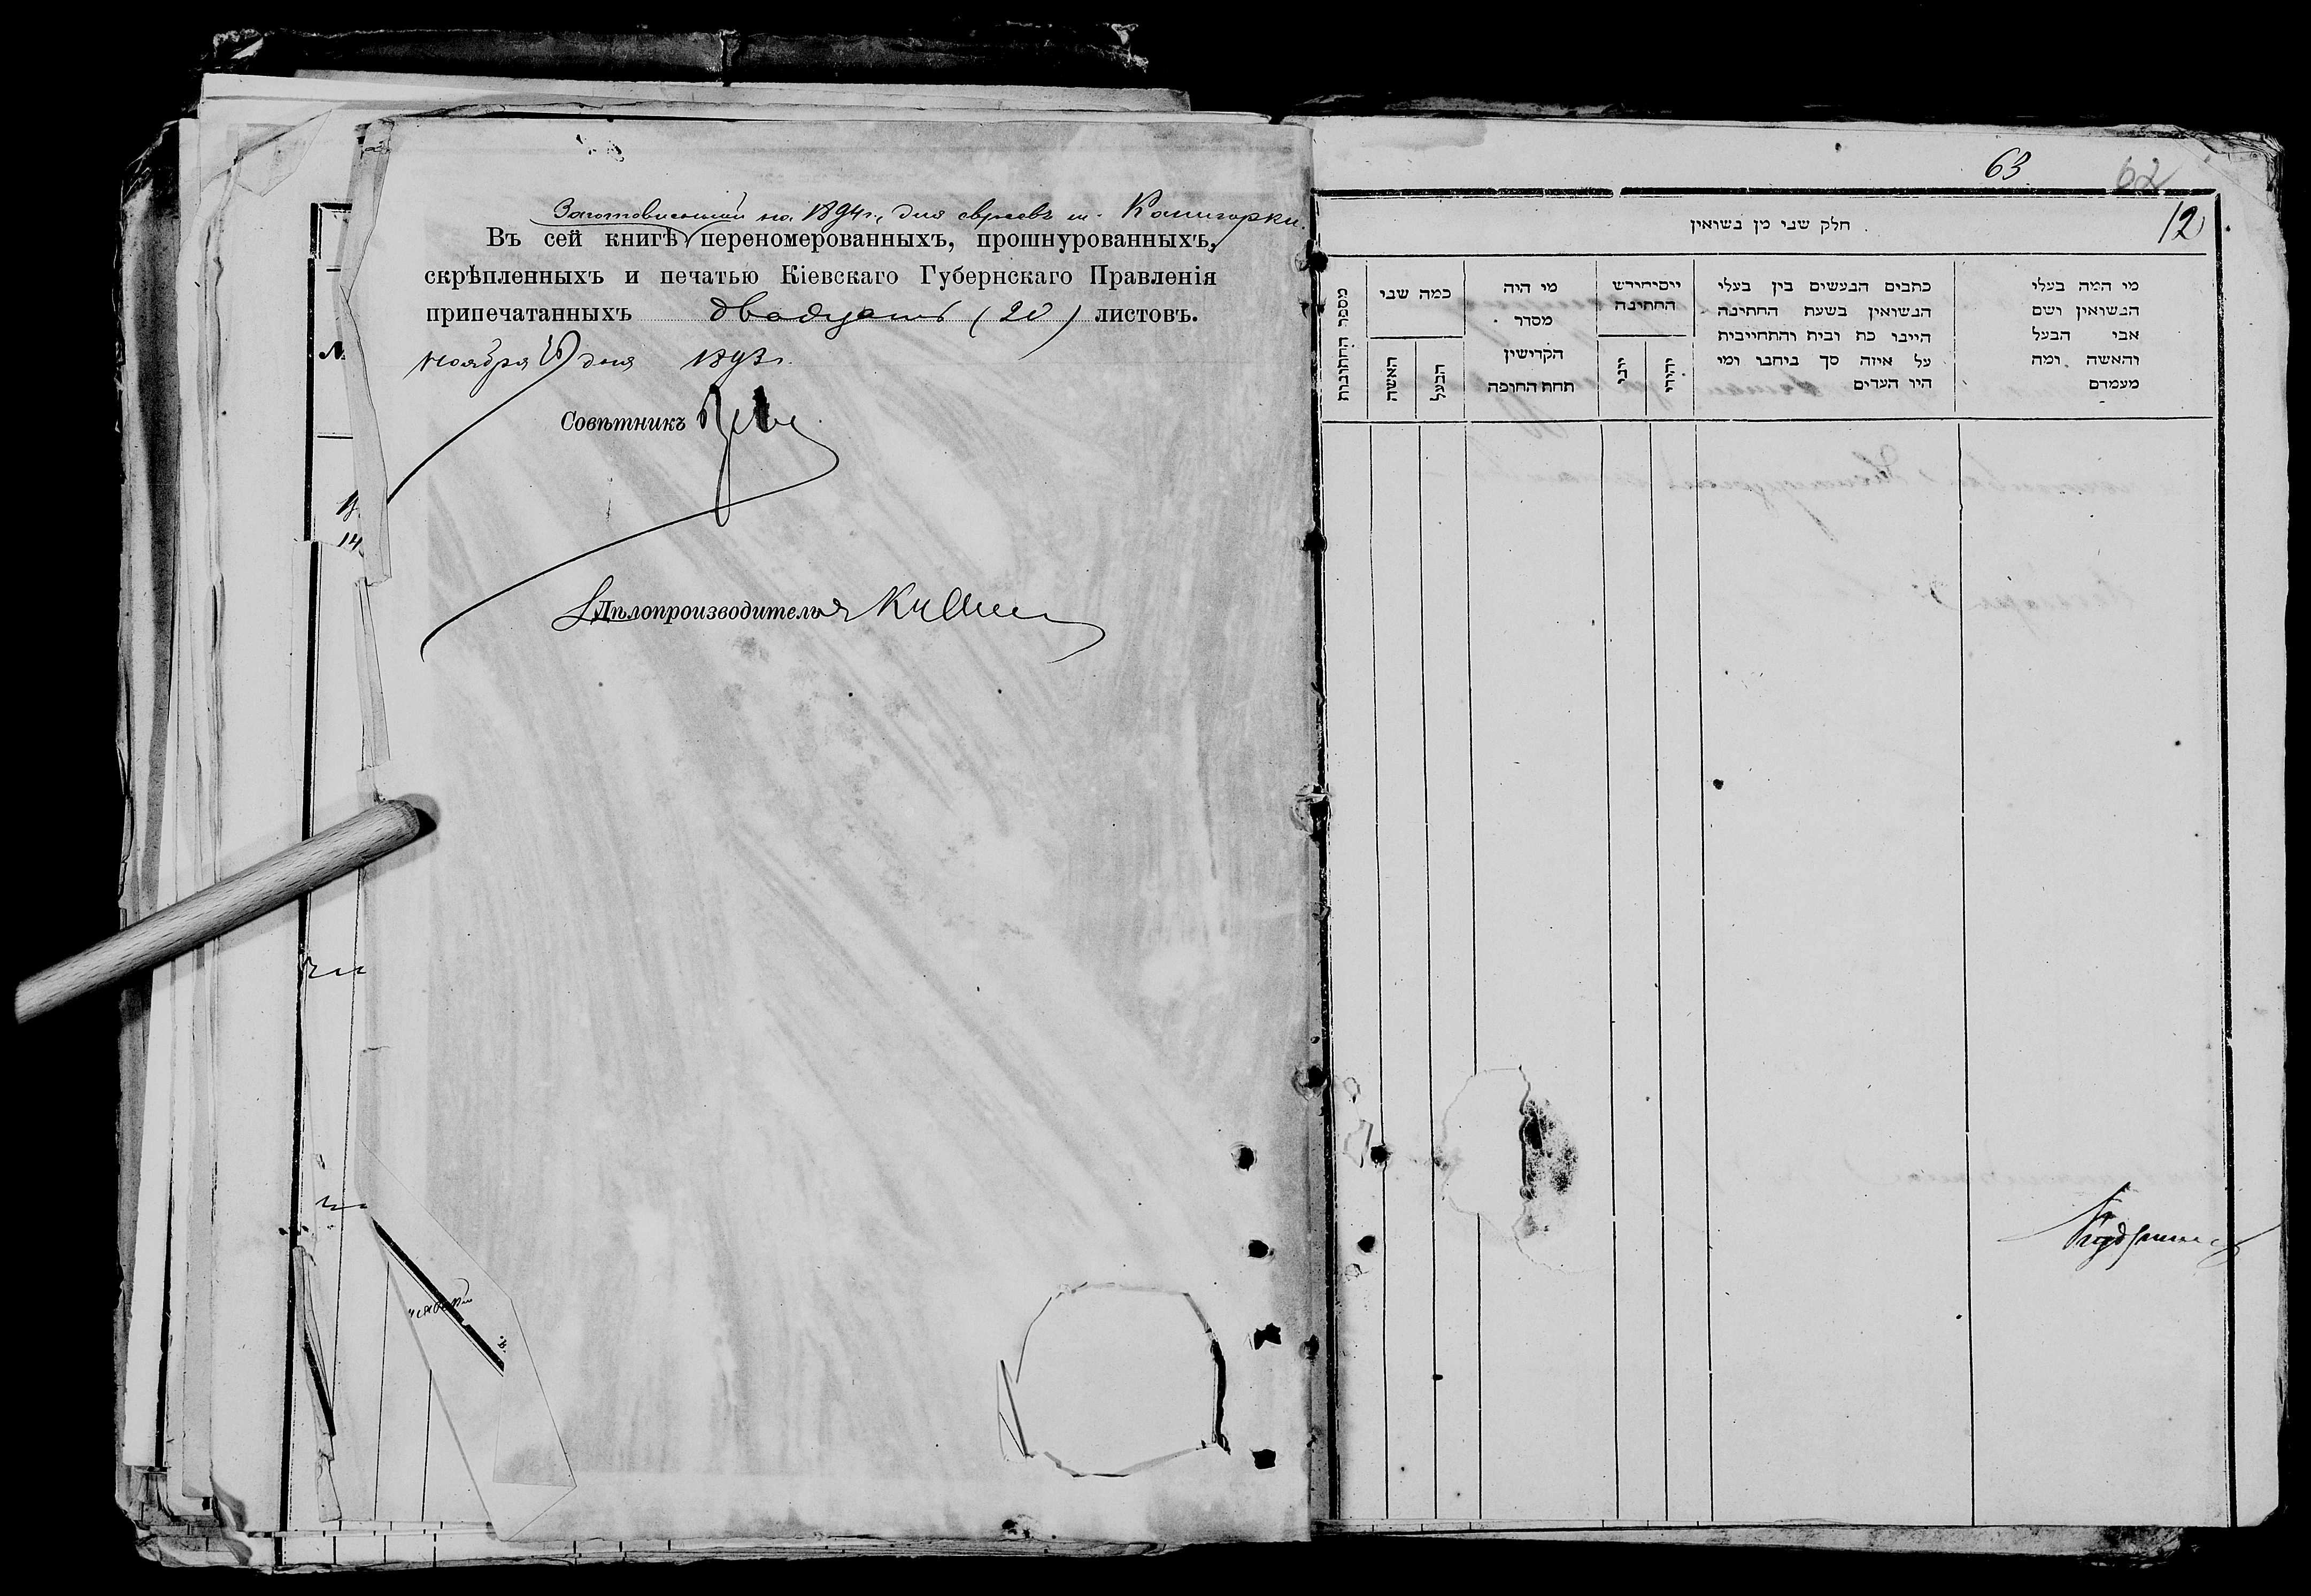 Заготовленной на 1894 г. для евреевъ м. Кошигорки.
Въ сей книгѣ перенумерованныхъ, прошнурованныхъ,
скрѣпленныхъ и печатью Кіевскаго Губернскаго Правленія
припечатанныхъ двадцать (20) листовъ.
Ноября дня 1893 г.
Совѣтникъ
Дѣлопроизводитель
63 62
12
חלק שני מן נשואין
מספר החתונות
כמה שני
האשה
הבעל
מי היה
מסדר
הקדישין
תחת החופה
החתינה
יוני
יהודי
כתבים הנעשים בין בעלי
הנשואין בשעת החתינה
היינו כת ובית והתחייבית
על איזה סך ביחבו ומי
היו העדים
מי המה בעלי
הנשואין ושם
אבי הבעל
והאשה ומה
מעמדם